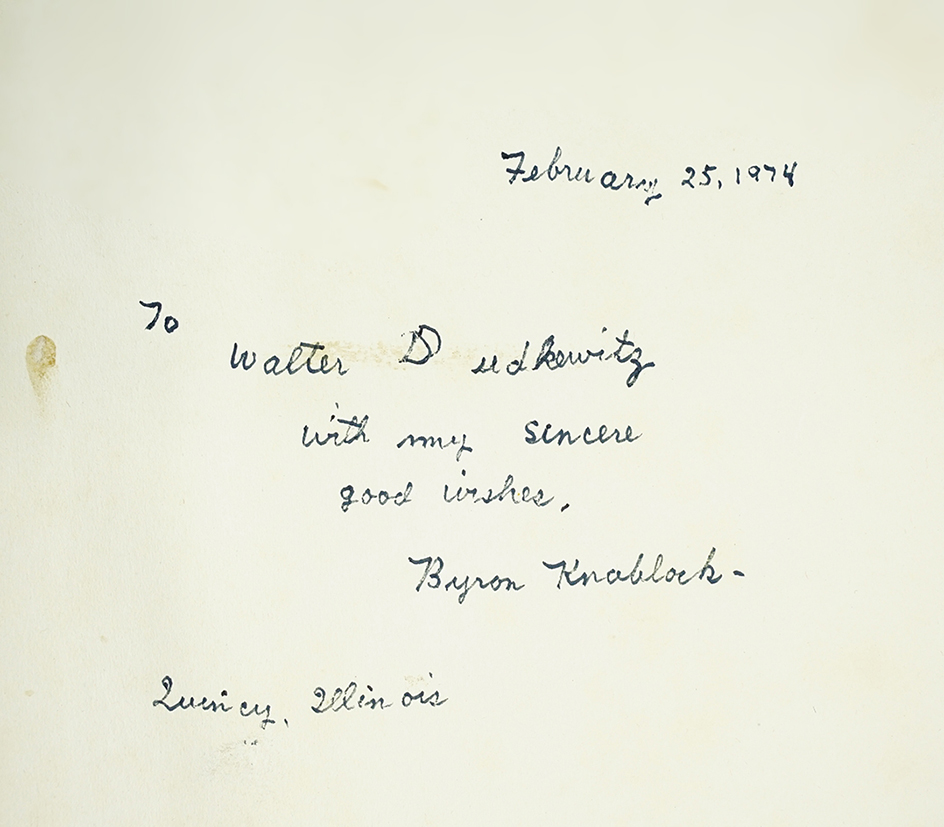 February 25, 1974
To
Walter Dudkewitz
with my sincere
good wishes,
Byron Knoblock-
Quincy, Illinois